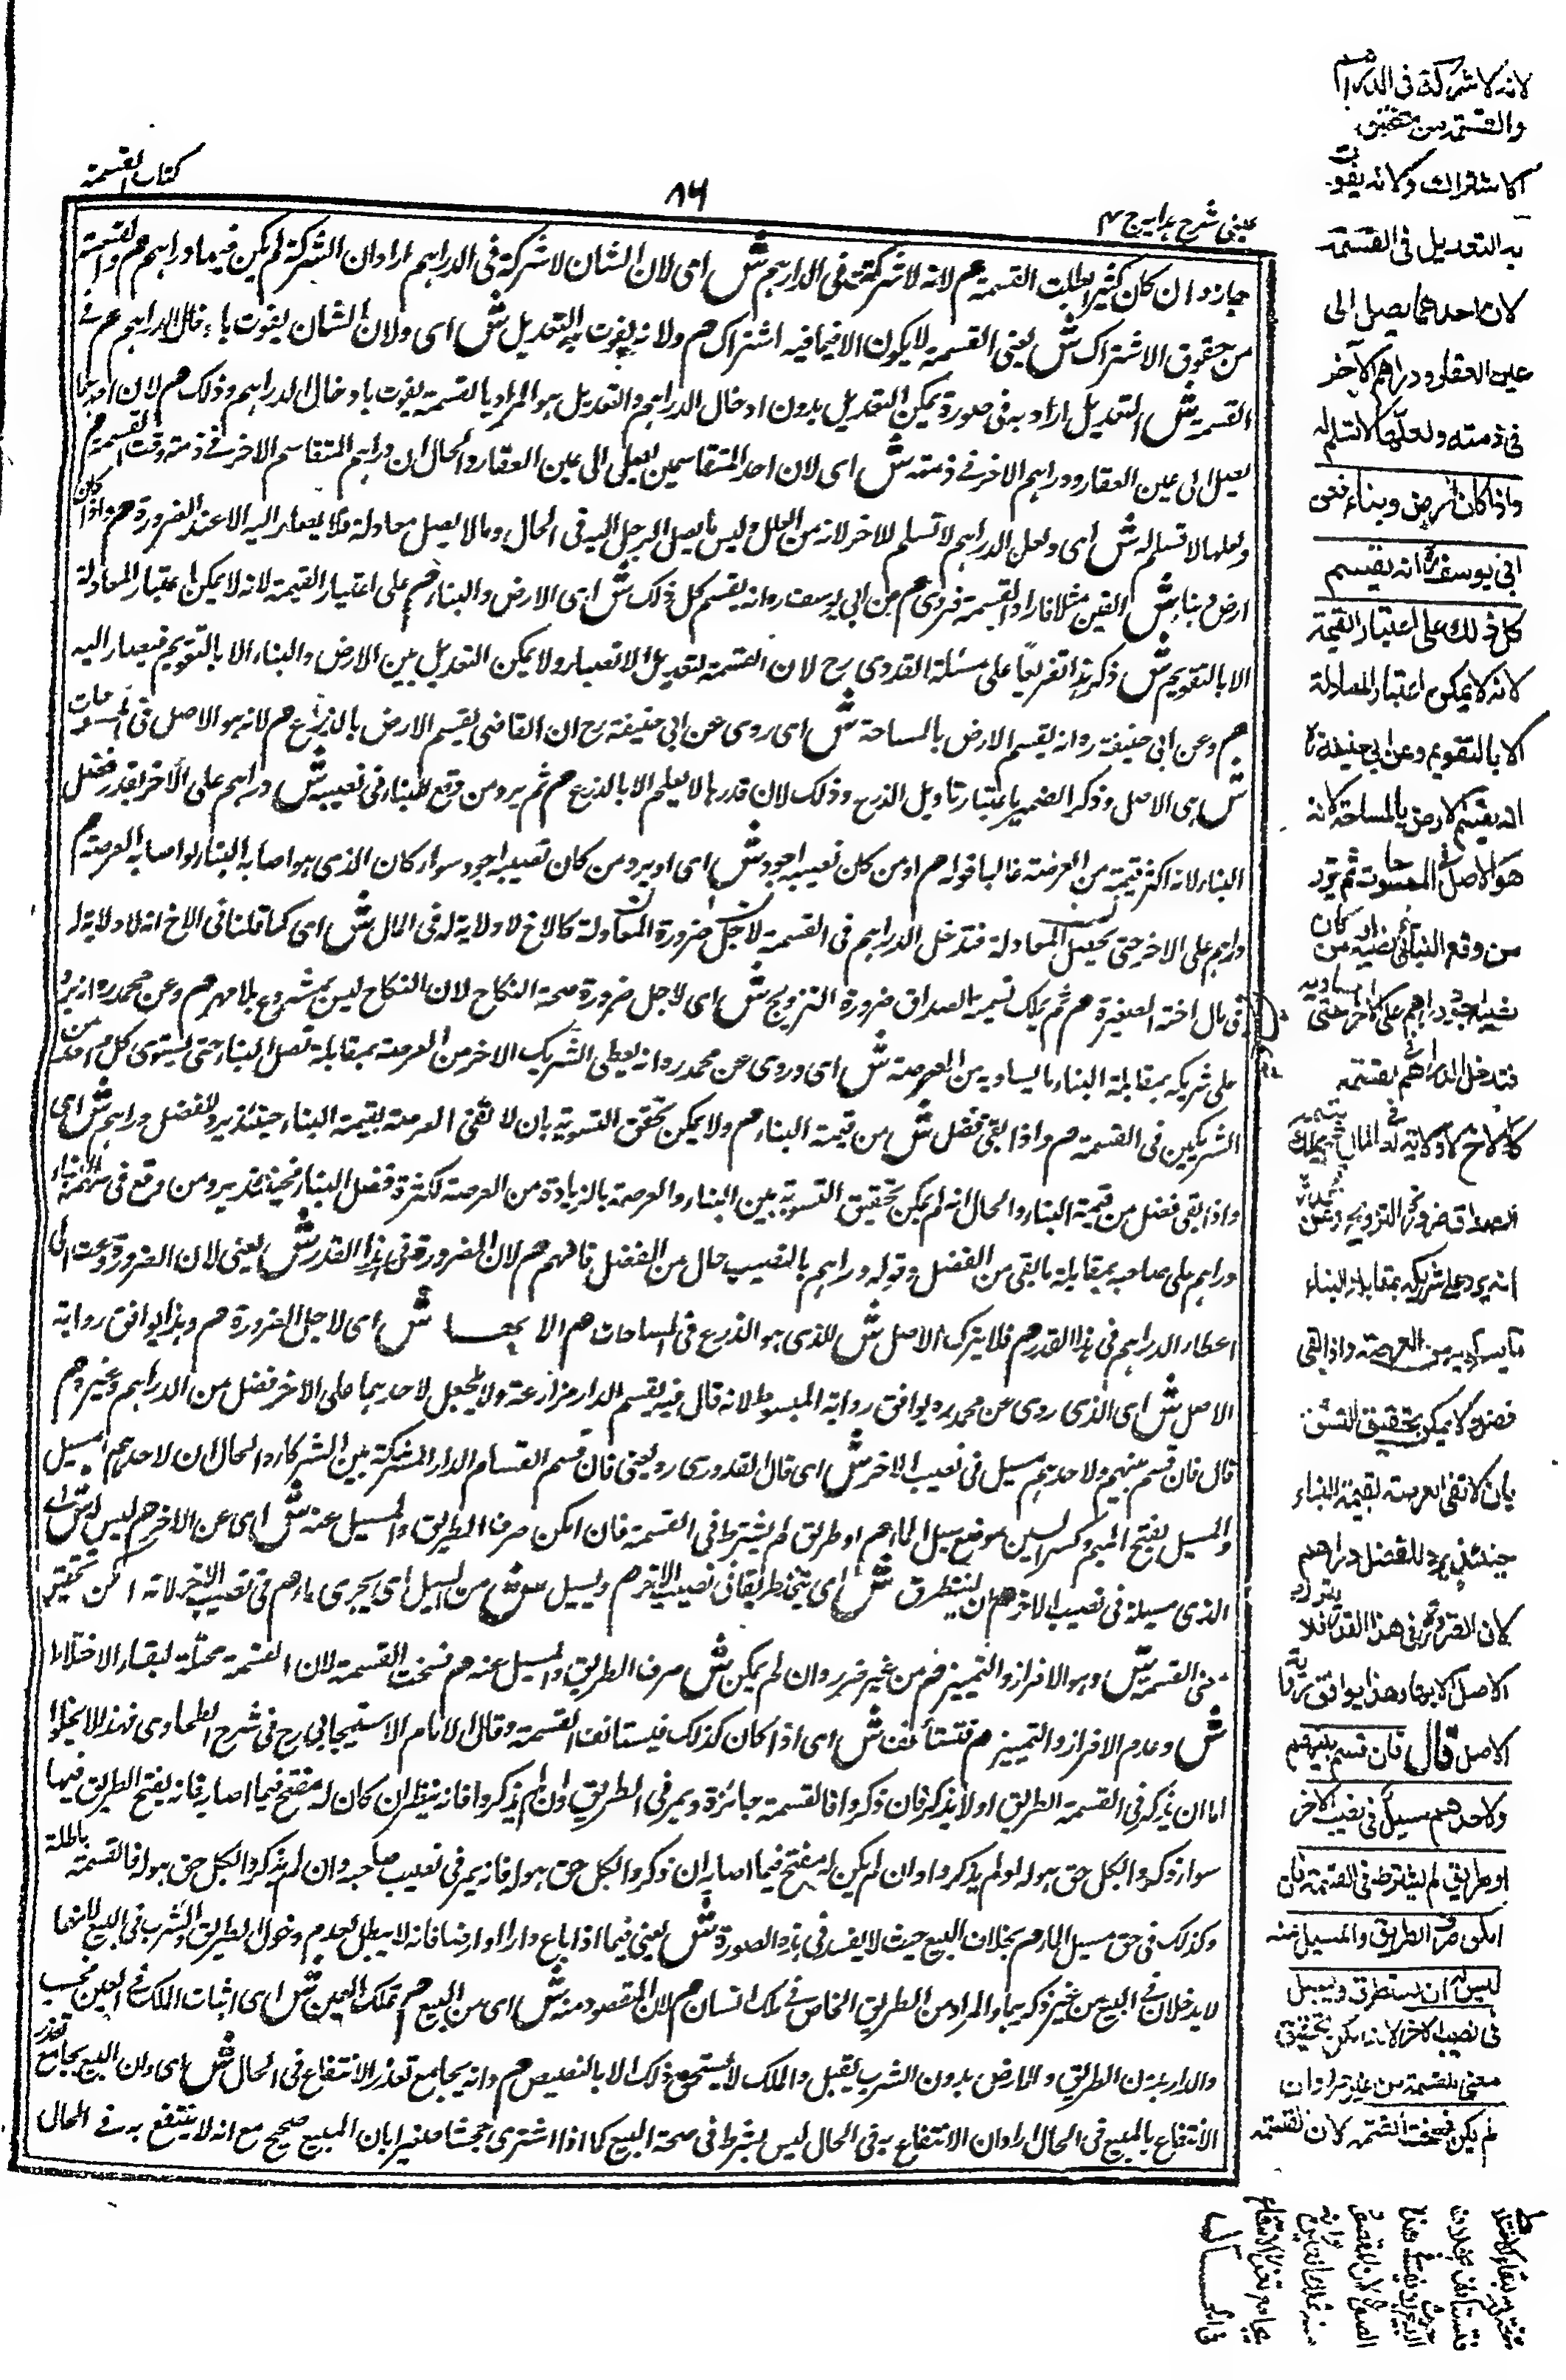 كتاب القسمة
٨٦
عينى شرح هدايه ج ٣
جاز وان كان كثيرا بطلت القسمة هم لانه لا شركة فى الدراهم ش اى لان الشان لا شركة فى الدراهم اراد ان الشركة لم يكن فيها دراهم هم والقسمة
من حقوق الاشتراك ش يعنى القسمة لا يكون الا فيما فيه اشتراك هم ولانه يفوت به التعديل ش اى ولان الشان يفوت بادخال الدراهم هم فى
القسمة ش التعديل اراد به فى صورة يمكن التعديل بدون ادخال الدراهم والتعديل هو المراد بالقسمة يفوت بادخال الدراهم وذلك هم لان احدهما
يصل الى عين العقار ودراهم الاخر فى ذمته ش اى لان احد المتقاسمين يصل الى عين العقار والحال ان دراهم المتقاسم الاخر فى ذمته وقت القسمة هم
ولعلها لا تسلم له ش اى ولعل الدراهم لا تسلم للاخر لانه من وليس ما يصل الرجل اليه فى الحال وما لا يصل معادلة فلا يصار اليه الا عند الضرورة هم واذا كان
ارض وبناء ش القين مثلا فارادا القسمة فروى هم عن ابى يوسف رو انه يقسم كل ذلك ش اى الارض والبناء هم على اعتبار القيمة لانه لا يمكن اعتبار المعادلة
الا بالتقويم ش ذكر هذا تفريعا على مسئلة القدورى رح لان القسمة لتعديل الانصباء ولا يمكن التعديل بين الارض والبناء الا بالتقويم فيصار اليه
هم وعن ابى حنيفة رو انه يقسم الارض بالمساحة ش اى روى عن ابى حنيفة رح ان القاضى يقسم الارض بالذراع هم لانه هو الاصل فى الممسوحات
ش اى الاصل وذكر الضمير باعتبار تاويل الذرع وذلك لان قدرها لا يعلم الا بالذرع هم ثم يرد من وقع البناء فى نصيبه ش دراهم على الاخر بقدر فضل
البناء لانه اكثر قيمة من العرصة غالبا قوله هم او من كان نصيبه اجود ش اى او يرد من كان نصيبه اجود سواء كان الذى هو اصابه البناء او اصابه العرصة هم
دراهم على الاخر حتى يحصل المعادلة فتدخل الدراهم فى القسمة لاجل ضرورة المعادلة كالاخ لا ولاية له فى المال ش اى كما قلنا فى الاخ انه لا ولاية له
فى مال اخته الصغيرة هم ثم يملك تسمية الصداق ضرورة التزويج ش اى لاجل ضرورة صحة النكاح لان النكاح ليس بمشروع بلا مهر هم وعن محمد رو انه يرد
على شريكه بمقابلة البناء ما يساويه من العرصة ش اى وروى عن محمد رو انه يعطى الشريك الاخر من العرصة بمقابلة فضل البناء حتى يستوى كل من
الشريكين فى القسمة هم واذا بقى فضل ش من قيمة البناء هم ولا يمكن تحقق التسوية بان لا تفى العرصة بقيمة البناء حينئذ يرد للفضل دراهم ش اى
واذا بقى فضل من قيمة البناء والحال انه لم يمكن تحقيق التسوية بين البناء والعرصة بالزيادة من العرصة لكثرة فضل البناء فحينئذ يرد من وقع فى سهمه البناء
دراهم على صاحبه بمقابلة ما بقى من الفضل وقوله دراهم بالنصب حال من الفضل فافهم هم لان الضرورة فى هذا القدر ش يعنى لان الضرورة دعت الى
اعطاء الدراهم فى هذا القدر هم فلا يترك الاصل ش الذى هو الذرع فى المساحات هم الا بها ش اى لاجل الضرورة هم وهذا يوافق رواية
الاصل ش اى الذى روى عن محمد رو يوافق رواية المبسوط لانه قال فيه يقسم الدار مزارعة ولا يجعل لاحدهما على الاخر فضل من الدراهم وغيره هم
قال فان قسم بينهم ولاحدهم مسيل فى نصيب الاخر ش اى قال القدورى رو يعنى فان قسم القسام الدار المشتركة بين الشركاء والحال ان لاحدهم مسيل
والمسيل بفتح الميم وكسر السين موضع سيل الماء هم او طريق لم يشترط فى القسمة فان امكن صرف الطريق والمسيل عنه ش اى عن الاخر هم ليس له ش اى
الذى مسيله فى نصيب الاخر هم ان يستطرق ش اى يتخذ طريقا فى نصيب الاخر هم ويسيل ش من السيل اى يجرى ماءه هم فى نصيب الاخر لانه امكن تحقيق
معنى القسمة ش وهو الافراز والتمييز هم من غير ضرر وان لم يمكن ش صرف الطريق والمسيل عنه هم فسخت القسمة لان القسمة مختلة لبقاء الاختلاط
ش وعدم الافراز والتمييز هم فتستأنف ش اى اذا كان كذلك فيستانف القسمة وقال الامام الاسبيجابى رح فى شرح الطحاوى فهذا لا يخلوا
اما ان يذكر فى القسمة الطريق او لا يذكر فان ذكروا فالقسمة جائزة ويمر فى الطريق وان لم يذكروا فانه ينظر ان كان له مفتح فيما اصابه فانه يفتح الطريق فيها
سواء ذكروا لكل حق هو له او لم يذكروا وان لم يكن له مفتح فيما اصابه ان ذكروا لكل حق هو له فانه يمر فى نصيب صاحبه وان لم يذكروا لكل حق هو له فالقسمة باطلة
وكذلك فى حق مسيل الماء هم بخلاف البيع حيث لا يفسد فى هذه الصورة ش يعنى فيما اذا باع دارا او ارضا فانه لا يبطل لعدم دخول الطريق والشرب فى البيع لانهما
لا يدخلان فى البيع من غير ذكرهما والمراد من الطريق الخاص فى ملك انسان هم لان المقصود منه ش اى من البيع هم تملك العين ش اى اثبات الملك فى العين فحسب
والدار بدون الطريق والارض بدون الشرب يقبل والملك لا يستحق ذلك الا بالتنصيص هم وانه يجامع تعذر الانتفاع فى الحال ش اى وان البيع يجامع تعذر
الانتفاع بالمبيع فى الحال اراد ان الانتفاع به فى الحال ليس بشرط فى صحة البيع كما اذا اشترى جحشا صغيرا بان المبيع صحيح مع انه لا ينتفع به فى الحال
لانه لا شركة فى الدراهم
والقسمة من حقوق
الاشتراك ولانه يفوت
به التعديل فى القسمة
لان احدهما يصل الى
عين العقار ودراهم الآخر
فى ذمته ولعلها لا تسلم له
واذا كان ارض وبناء فعن
ابى يوسف انه يقسم
كل ذلك على اعتبار القيمة
لانه لا يمكن اعتبار المعادلة
الا بالتقويم وعن ابى حنيفة
انه يقسم الارض بالمساحة لانه
هو الاصل فى الممسوحات ثم يرد
من وقع البناء فى نصيبه او من كان
نصيبه اجود دراهم على الآخر حتى يساويه
فتدخل الدراهم فى القسمة
كالاخ لا ولاية له فى المال ثم يملك تسمية
الصداق ضرورة التزويج وعن محمد
انه يرد على شريكه بمقابلة البناء
ما يساويه من العرصة واذا بقى
فضل ولا يمكن تحقيق التسوية
بان لا تفى العرصة بقيمة البناء
حينئذ يرد للفضل دراهم
لان الضرورة فى هذا القدر فلا يترك
الاصل الا بها وهذا يوافق رواية
الاصل قال فان قسم بينهم
ولاحدهم مسيل فى نصيب الآخر
او طريق لم يشترط فى القسمة فان
امكن صرف الطريق والمسيل عنه
ليس له ان يستطرق ويسيل
فى نصيب الآخر لانه امكن تحقيق
معنى القسمة من غير ضرر وان
لم يمكن فسخت القسمة لان القسمة
مختلة لبقاء الاختلاط
فتستانف بخلاف
البيع حيث لا يفسد فى هذه
الصورة لان المقصود
منه تملك العين وانه
يجامع تعذر الانتفاع
فى الحال